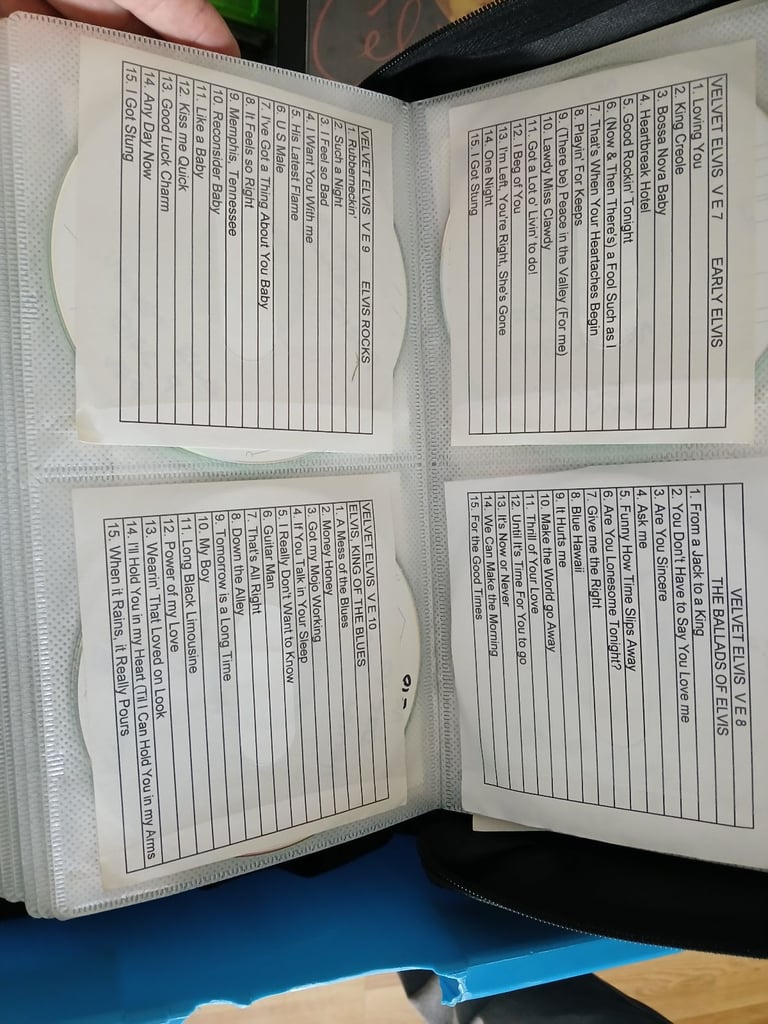 VELVET ELVIS V E 7 EARLY ELVIS
1. Loving You
2. King Creole
3. Bossa Nova Baby
4. Heartbreak Hotel
5. Good Rockin' Tonight
6. (Now & Then There's) a Fool Such as I
7. That's When Your Heartaches Begin
8. Playin' For Keeps
9. (There be) Peace in the Valley (For me)
10. Lawdy Miss Clawdy
11. Got a Lot o' Livin' to do!
12. I Beg of You
13. I'm Left, You're Right, She's Gone
14. One Night
15. I Got Stung
VELVET ELVIS V E 8
THE BALLADS OF ELVIS
1. From a Jack to a King
2. You Don't Have to Say You Love me
3. Are You Sincere
4. Ask me
5. Funny How Time Slips Away
6. Are You Lonesome Tonight?
7. Give me the Right
8. Blue Hawaii
9. It Hurts me
10. Make the World go Away
11. Thrill of Your Love
12. Until It's Time For You to go
13. It's Now or Never
14. We Can Make the Morning
15. For the Good Times
VELVET ELVIS V E 9 ELVIS ROCKS
1. Rubberneckin'
2. Such a Night
3. I Feel so Bad
4. I Want You With me
5. His Latest Flame
6. U S Male
7. I've Got a Thing About You Baby
8. It Feels so Right
9. Memphis, Tennessee
10. Reconsider Baby
11. Like a Baby
12. Kiss me Quick
13. Good Luck Charm
14. Any Day Now
15. I Got Stung
VELVET ELVIS V E 10
ELVIS, KING OF THE BLUES
1. A Mess of the Blues
2. Money Honey
3. Got my Mojo Working
4. If You Talk in Your Sleep
5. I Really Don't Want to Know
6. Guitar Man
7. That's All Right
8. Down the Alley
9. Tomorrow is a Long Time
10. My Boy
11. Long Black Limousine
12. Power of my Love
13. Wearin That Loved on Look
14. I'll Hold You in my Heart (Til I Can Hold You in my Arms
15. When it Rains, it Really Pours